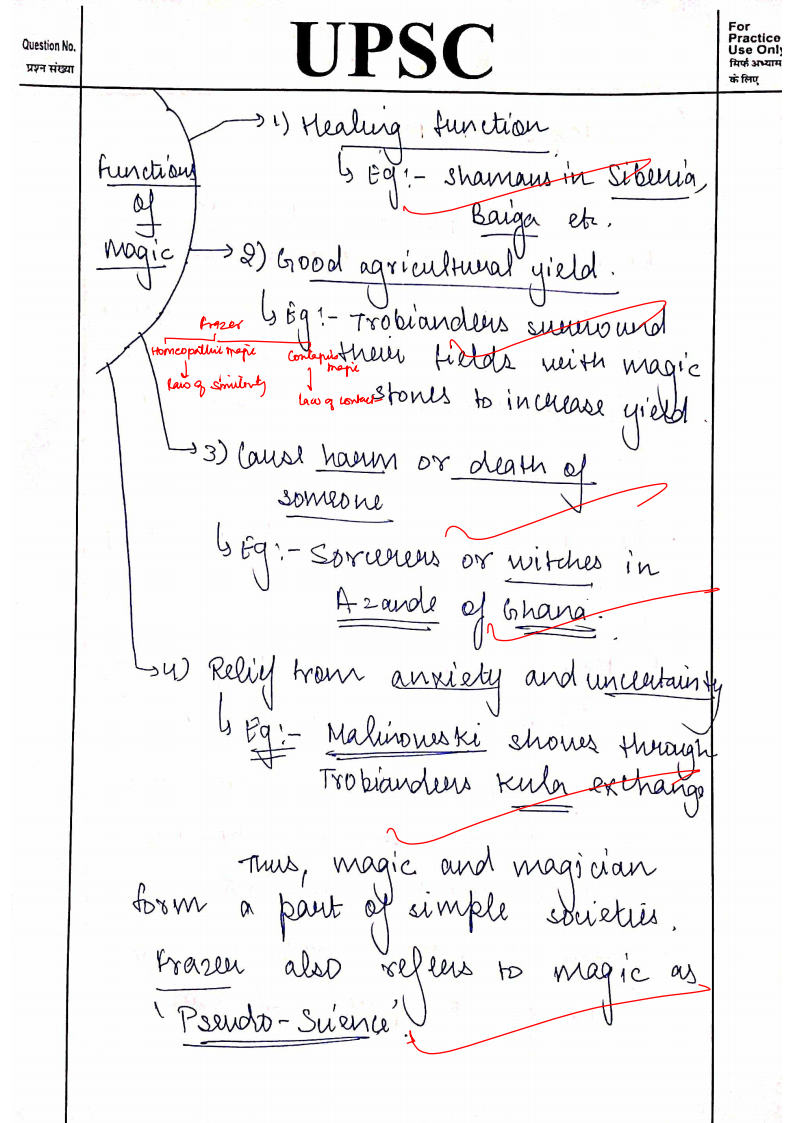 Question No.
प्रश्न संख्या
UPSC
For
Practice
Use Only
सिर्फ अभ्यास
के लिए
Functions
of
Magic
1) Healing function
↳ Eg:- Shamans in Siberia,
Baiga etc.
2) Good agricultural yield.
↳ Eg:- Trobianders surround
their fields with magic
stones to increase yield.
Frazer
Homeopathic magic
Law of similarity
Contagious magic
Law of contact
3) Cause harm or death of
someone
↳ Eg:- Sorcerers or witches in
Azande of Ghana.
4) Relief from anxiety and uncertainty
↳ Eg:- Malinowski shows through
Trobianders Kula exchange
Thus, magic and magician
form a part of simple societies.
Frazer also refers to magic as
'Pseudo-Science'.